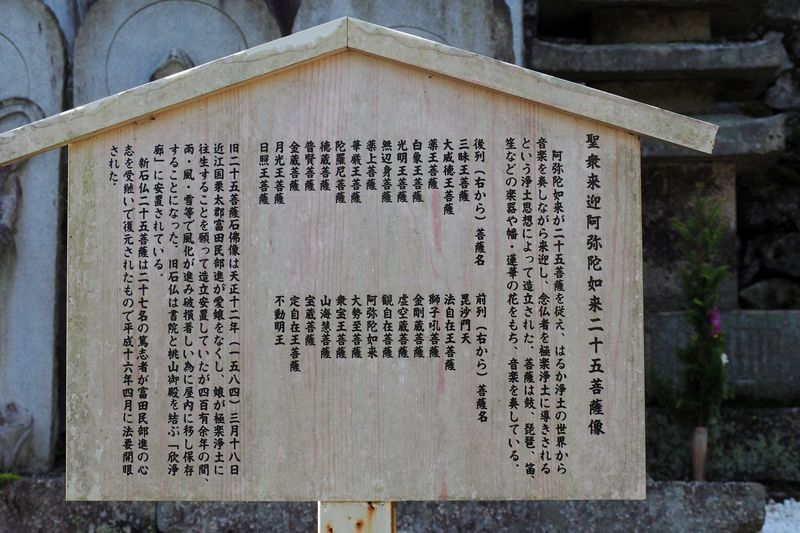 聖衆来迎阿弥陀如来二十五菩薩像
阿弥陀如来が二十五菩薩を従え、はるか浄土の世界から
音楽を奏しながら来迎し、念仏者を極楽浄土に導きされる
という浄土思想によって造立された。菩薩は鼓、琵琶、笛、
笙などの楽器や幡・蓮華の花をもち、音楽を奏している。
後列（右から）菩薩名
三昧王菩薩
大威徳王菩薩
薬王菩薩
白象王菩薩
光明王菩薩
無辺身菩薩
薬上菩薩
華厳王菩薩
陀羅尼菩薩
徳蔵菩薩
普賢菩薩
金蔵菩薩
月光王菩薩
日照王菩薩
前列（右から）菩薩名
毘沙門天
法自在王菩薩
獅子吼菩薩
金剛蔵菩薩
虚空蔵菩薩
観自在菩薩
阿弥陀如来
大勢至菩薩
衆宝王菩薩
山海慧菩薩
宝蔵菩薩
定自在王菩薩
不動明王
旧二十五菩薩石佛像は天正十二年（一五八四）三月十八日
近江国栗太郡富田民部進が愛娘をなくし、娘が極楽浄土に
往生することを願って造立安置していたが四百有余年の間、
雨・風・雪等で風化が進み破損著しい為に屋内に移し保存
することになった。旧石仏は書院と桃山御殿を結ぶ「欣浄
廊」に安置されている。
新石仏二十五菩薩は二十七名の篤志者が富田民部進の心
志を受継いで復元されたもので平成十六年四月に法要開眼
された。